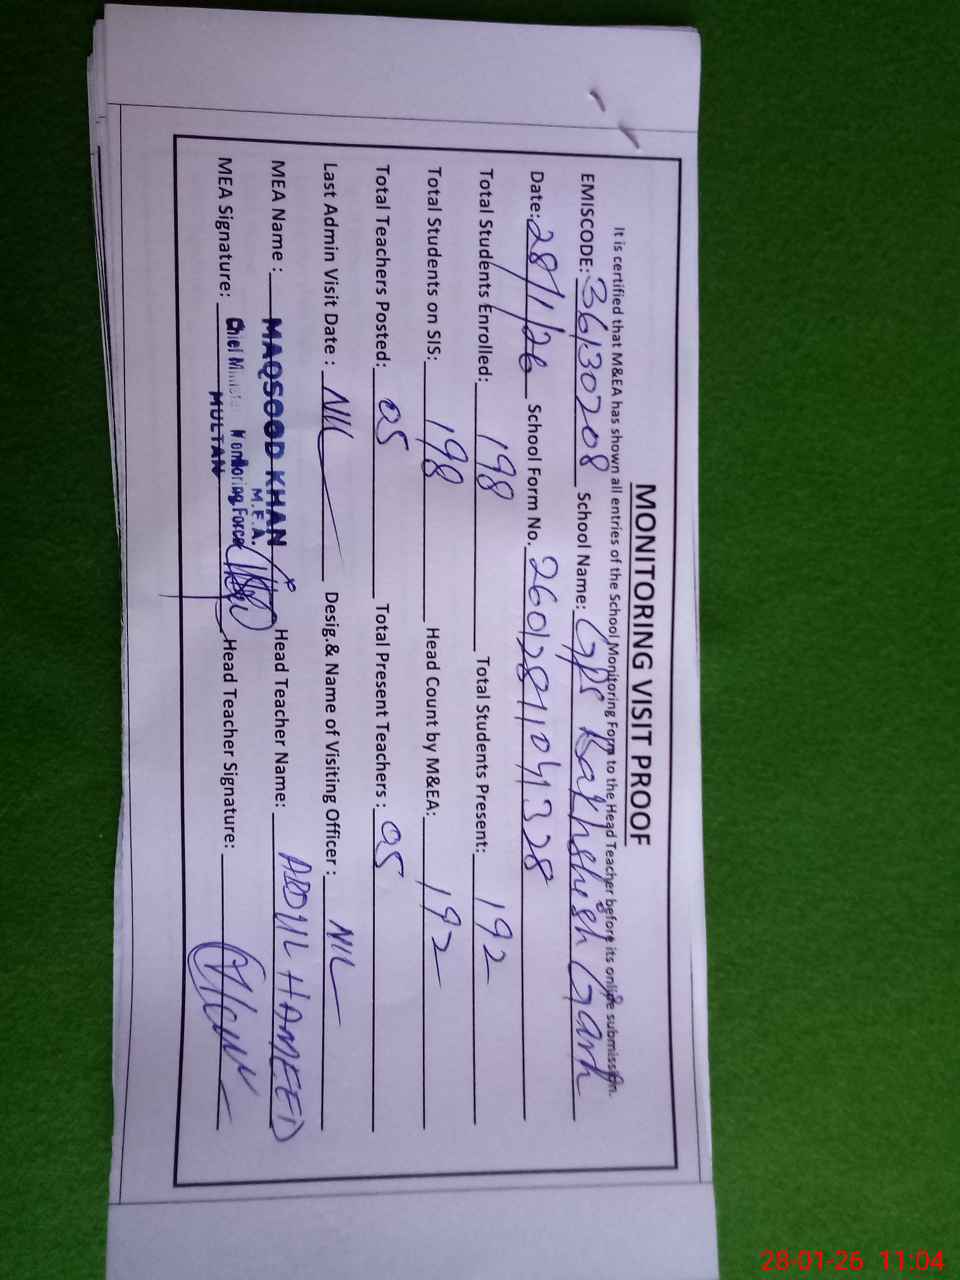 MONITORING VISIT PROOF
It is certified that M&EA has shown all entries of the School Monitoring Form to the Head Teacher before its online submission.
EMISCODE: 36130208 School Name: GPS Bakhshish Garh
Date: 28/1/26 School Form No. 26012811041328
Total Students Enrolled: 198 Total Students Present: 192
Total Students on SIS: 198 Head Count by M&EA: 192
Total Teachers Posted: 05 Total Present Teachers : 05
Last Admin Visit Date : NIL Desig.& Name of Visiting Officer : NIL
MEA Name : MAQSOOD KHAN Head Teacher Name: ABDUL HAMEED
M.E.A.
MEA Signature: Chief Minister Monitoring Force Head Teacher Signature:
MULTAN
28-01-26 11:04